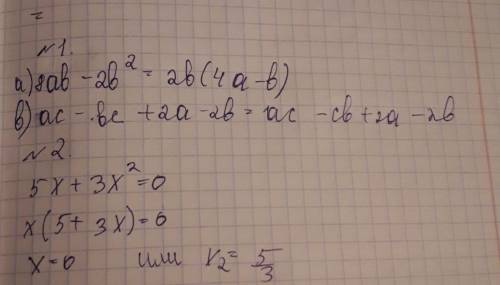 =
№1.
а) 8ab - 2b² = 2b(4a-b)
в) ac - bc + 2a - 2b = ac - cb + 2a - 2b
№2.
5x + 3x² = 0
x(5 + 3x) = 0
x = 0 или x₂ = 5/3